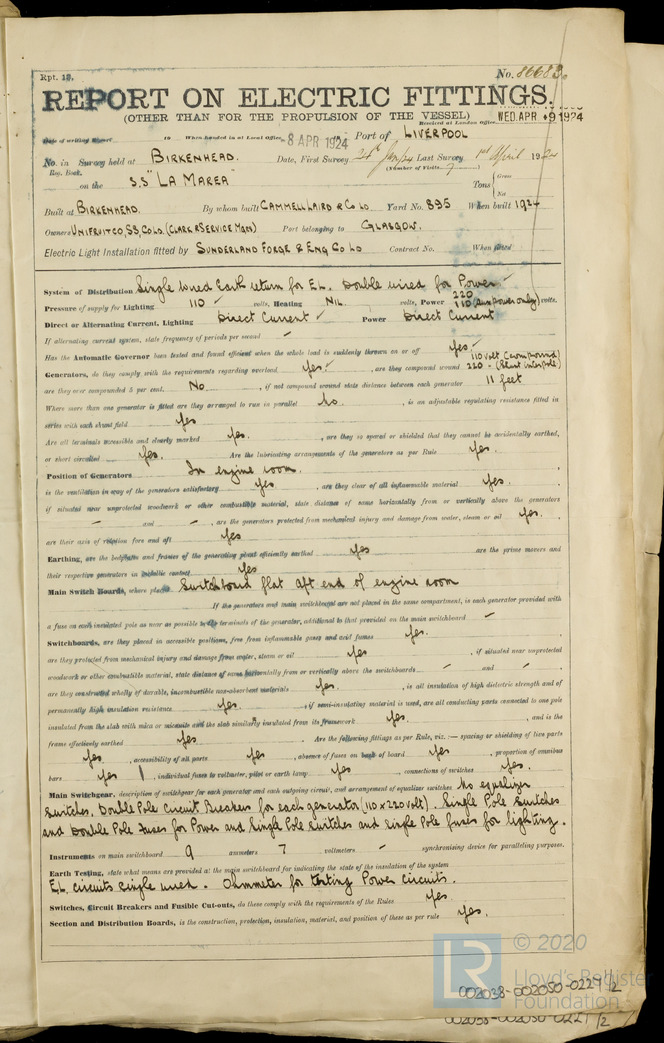 Rpt. 13.
No. 86683.
REPORT ON ELECTRIC FITTINGS.
(OTHER THAN FOR THE PROPULSION OF THE VESSEL)
Received at London Office WED. APR. 9 1924
Date of writing Report 19 When handed in at Local Office 8 APR 1924 Port of LIVERPOOL
No. in Survey held at BIRKENHEAD. Date, First Survey Last Survey 1st April 1924
Reg. Book. (Number of Visits 7)
on the S.S "LA MAREA" Tons { Gross
Net
Built at BIRKENHEAD. By whom built CAMMELL LAIRD & CO LD Yard No. 895 When built 1924
Owners UNIFRUITCO, SS, CO LD. (CLARK & SERVICE MGRS) Port belonging to GLASGOW.
Electric Light Installation fitted by SUNDERLAND FORGE & ENG CO LD Contract No. When fitted
System of Distribution Single wired Earth return for E.L. Double wired for Power
Pressure of supply for Lighting 110 volts, Heating NIL volts, Power 220 110 (Aux power only) volts.
Direct or Alternating Current, Lighting Direct Current Power Direct Current
If alternating current system, state frequency of periods per second -
Has the Automatic Governor been tested and found efficient when the whole load is suddenly thrown on or off Yes.
Generators, do they comply with the requirements regarding overload Yes. , are they compound wound 110 volt (Compound) 220 - (Shunt interpole)
are they over compounded 5 per cent. No , if not compound wound state distance between each generator 11 feet
Where more than one generator is fitted are they arranged to run in parallel No , is an adjustable regulating resistance fitted in
series with each shunt field Yes
Are all terminals accessible and clearly marked Yes. , are they so spaced or shielded that they cannot be accidentally earthed,
or short circuited Yes. Are the lubricating arrangements of the generators as per Rule Yes.
Position of Generators In engine room.
is the ventilation in way of the generators satisfactory Yes. , are they clear of all inflammable material Yes.
if situated near unprotected woodwork or other combustible material, state distance of same horizontally from or vertically above the generators
- and - , are the generators protected from mechanical injury and damage from water, steam or oil Yes.
are their axis of rotation fore and aft Yes
Earthing, are the bedplates and frames of the generating plant efficiently earthed Yes are the prime movers and
their respective generators in metallic contact Yes
Main Switch Boards, where placed Switchboard flat aft end of engine room
If the generators and main switchboard are not placed in the same compartment, is each generator provided with
a fuse on each insulated pole as near as possible to the terminals of the generator, additional to that provided on the main switchboard -
Switchboards, are they placed in accessible positions, free from inflammable gases and acid fumes Yes.
are they protected from mechanical injury and damage from water, steam or oil Yes , if situated near unprotected
woodwork or other combustible material, state distance of same horizontally from or vertically above the switchboards - and -
are they constructed wholly of durable, incombustible non-absorbent materials Yes. , is all insulation of high dielectric strength and of
permanently high insulation resistance Yes. , if semi-insulating material is used, are all conducting parts connected to one pole
insulated from the slab with mica or micanite and the slab similarly insulated from its framework Yes. , and is the
frame effectively earthed Yes Are the following fittings as per Rule, viz.:— spacing or shielding of live parts
Yes. , accessibility of all parts Yes , absence of fuses on back of board Yes , proportion of omnibus
bars Yes , individual fuses to voltmeter, pilot or earth lamp Yes , connections of switches Yes.
Main Switchgear, description of switchgear for each generator and each outgoing circuit, and arrangement of equalizer switches No equalizer
Switches. Double Pole Circuit Breakers for each generator (110 & 220 volt). Single Pole Switches
and Double Pole Fuses for Power and Single Pole Switches and Single Pole fuses for lighting.
Instruments on main switchboard 9 ammeters 7 voltmeters - synchronising device for paralleling purposes.
Earth Testing, state what means are provided at the main switchboard for indicating the state of the insulation of the system
E.L. circuits single wired. Ohmmeter for testing Power circuits.
Switches, Circuit Breakers and Fusible Cut-outs, do these comply with the requirements of the Rules Yes
Section and Distribution Boards, is the construction, protection, insulation, material, and position of these as per rule Yes.
© 2020
LR
Lloyd's Register
Foundation
002038-002050-0229 1/2